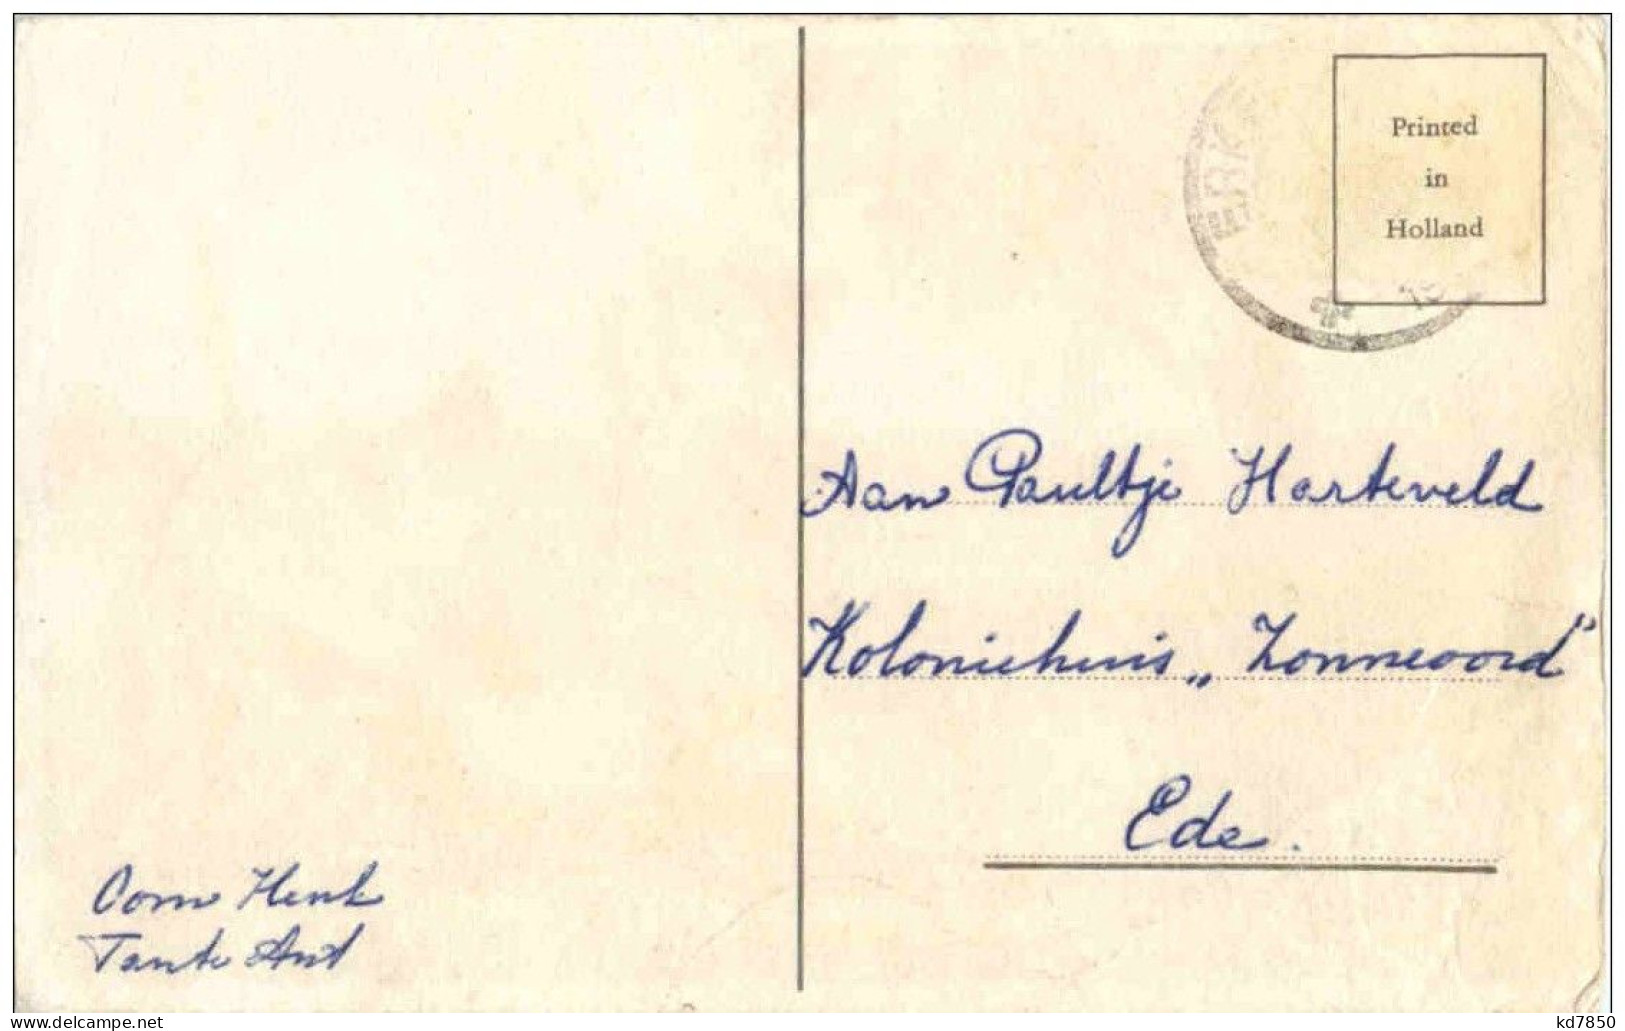 Printed
in
Holland
Aan Paultje Harteveld
Koloniehuis „Zonneoord”
Ede.
Oom Henk
Tante Ant
kd7850